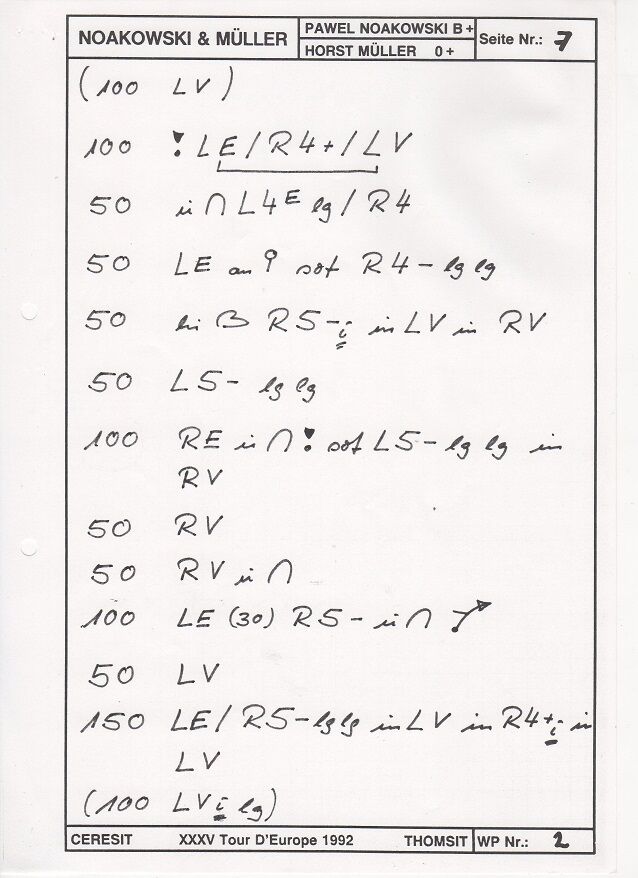 NOAKOWSKI & MÜLLER
PAWEL NOAKOWSKI B +
HORST MÜLLER 0 +
Seite Nr.: 7
(100 LV)
100 ! LE / R4+ / LV
50 ü ∩ L4E lg / R4
50 LE an sof R4- lg lg
50 R5-i in LV in RV
50 L5- lg lg
100 RE ü ∩ ! sof L5- lg lg in
RV
50 RV
50 RV ü ∩
100 LE (30) R5- ü ∩
50 LV
150 LE / R5-lglg in LV in R4+i in
LV
(100 LV i lg)
CERESIT XXXV Tour D'Europe 1992 THOMSIT WP Nr.: 2